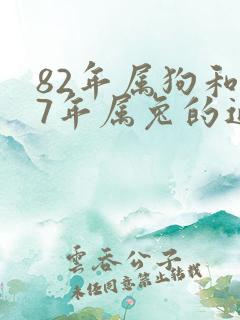 82年属狗和
7年属兔的
雲吞公子
未经同意禁止转载